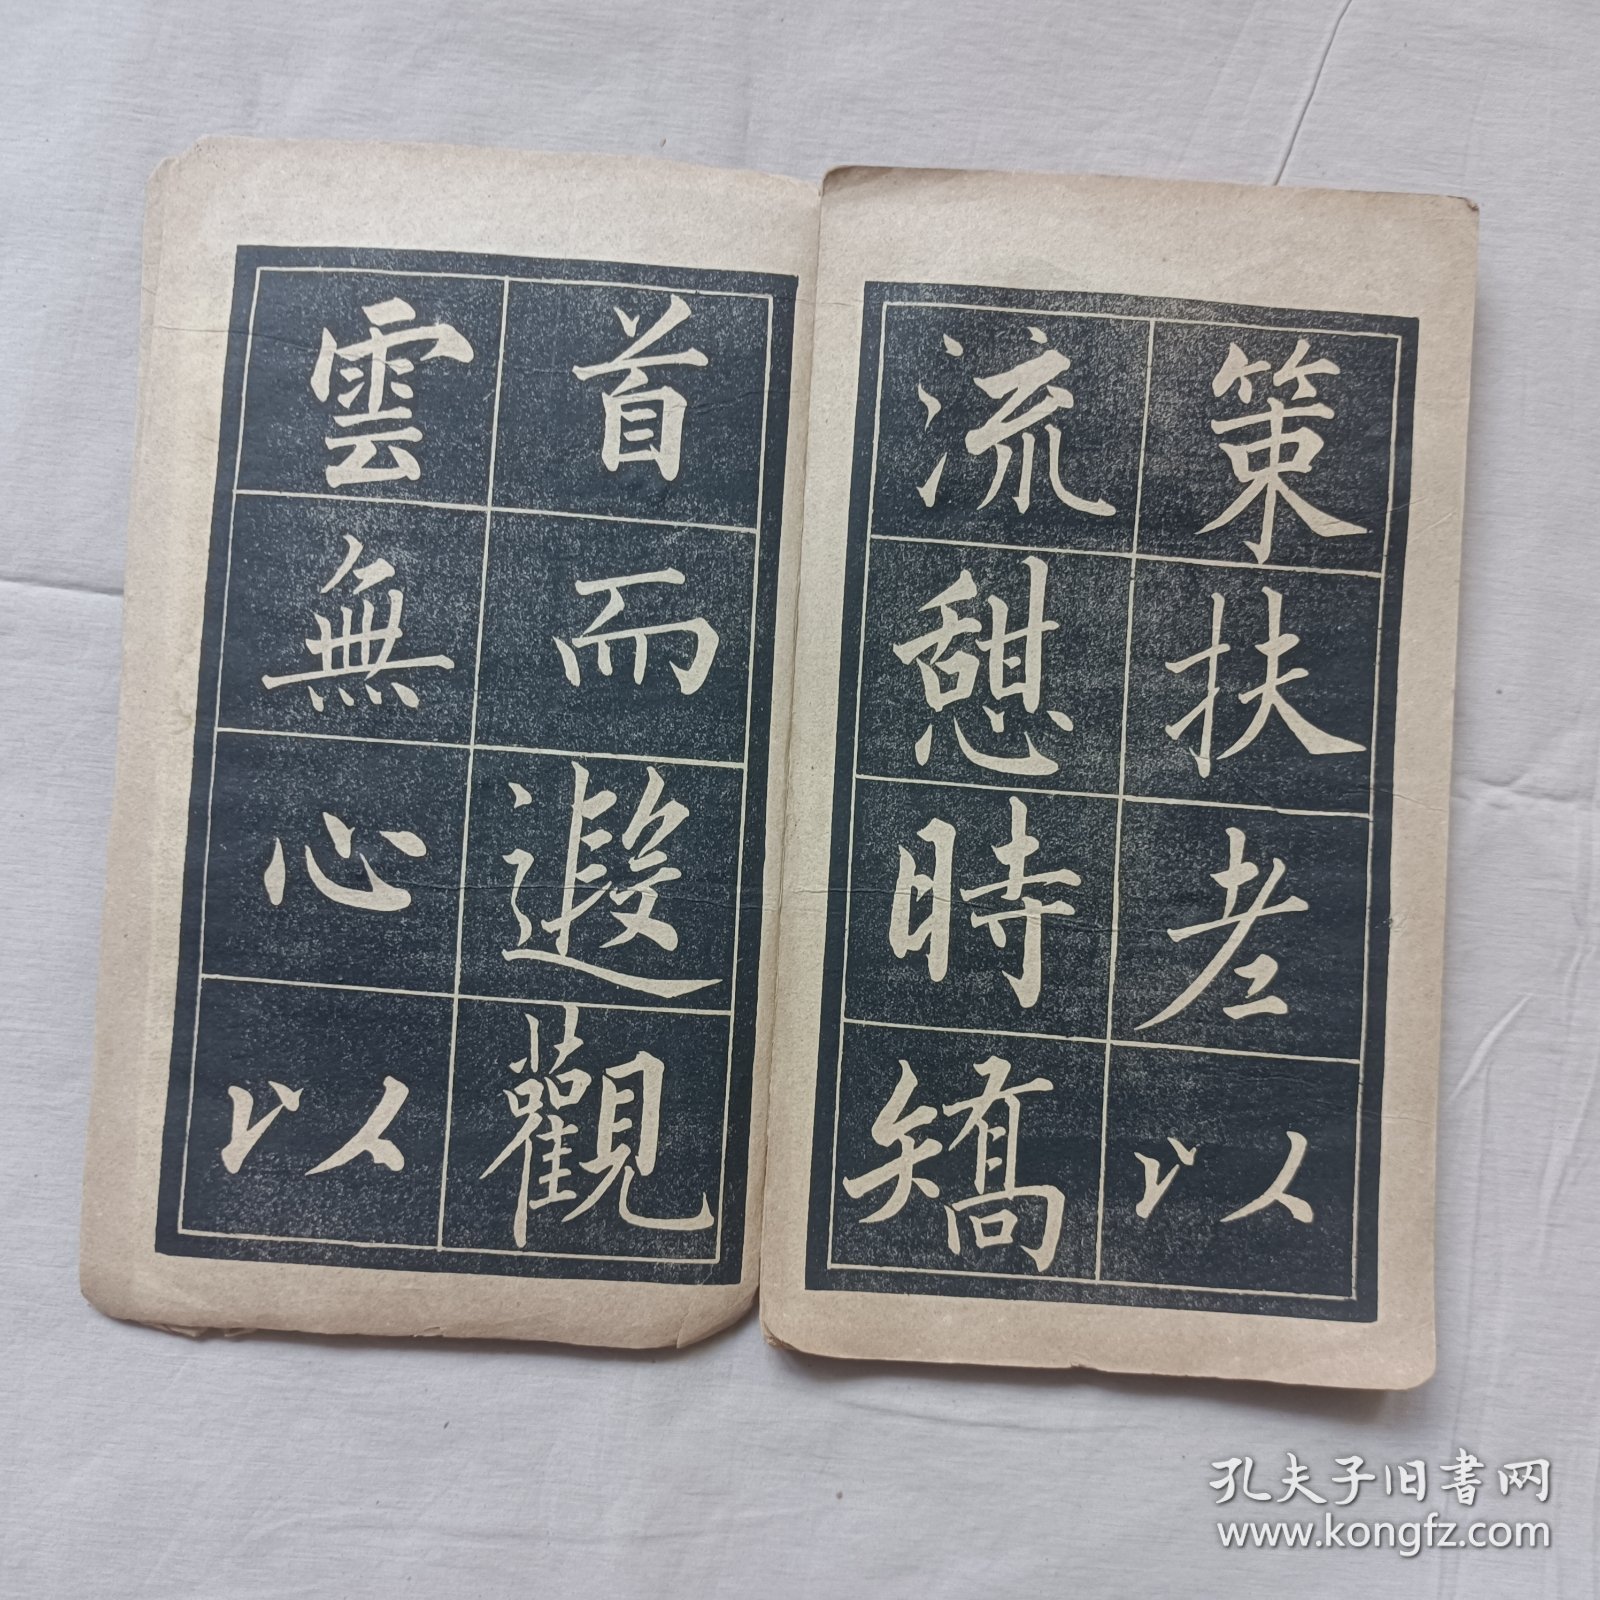 策扶老以
流憩時矯
首而遐觀
雲無心以
孔夫子旧书网
www.kongfz.com